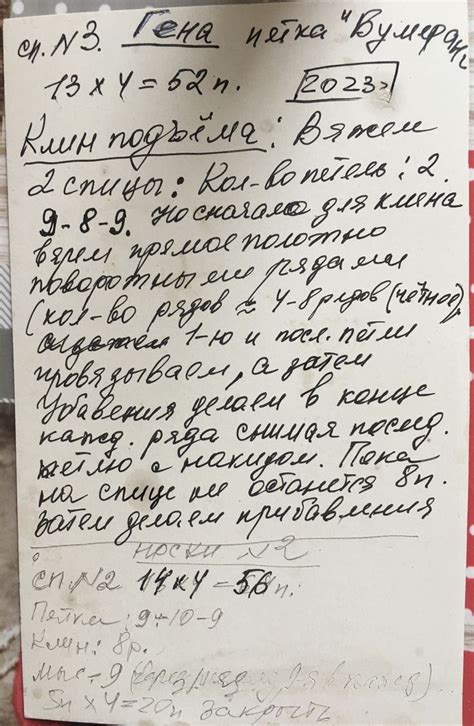 сп. N3. Гена пятка "Бумеранг"
13 х 4 = 52п. 2023г
Клин подъёма: Вяжем
2 спицы: Кол-во петель: 2.
9-8-9. Но сначала для клина
вяжем прямое полотно
поворотными рядами
(кол-во рядов ≈ 4-8 рядов (чётное),
1-ю и посл. петли
провязываем, а затем
Убавения делаем в конце
кажд. ряда снимая послед.
петлю с накидом. Пока
на спице не останется 8п.
Затем делаем прибавления
носки N2
СП. N2 14х4 = 56п.
Пятка: 9-10-9
Клин: 8р.
мыс - 9 (
5п х 4 = 20п закрыть